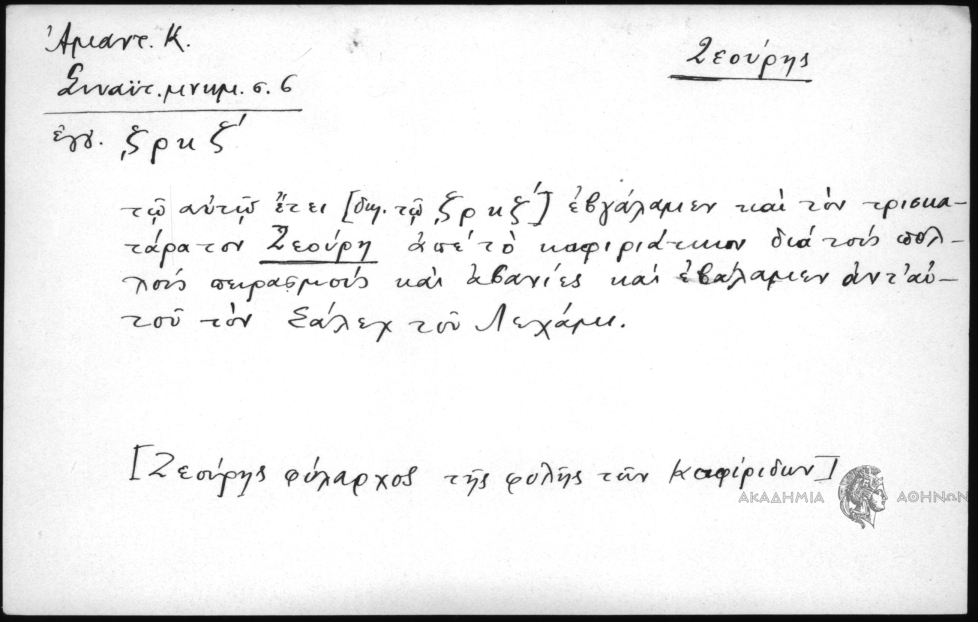 Ἀμαντ. Κ.
Σιναϊτ. μνημ. σ. 6
Ζεούρης
ἐγγ. ͵ζρκζʹ
τῷ αὐτῷ ἔτει [δηλ. τῷ ͵ζρκζʹ] ἐβγάλαμεν καὶ τὸν τρισκα-
τάρατον Ζεούρη ἀπὲ τὸ καφιριάτικον διὰ τοὺς πολ-
λοὺς πειρασμοὺς καὶ ἀβανίες καὶ ἐβάλαμεν ἀντ' αὐ-
τοῦ τὸν Σάλεχ τοῦ Λεχάμη.
[Ζεούρης φύλαρχος τῆς φυλῆς τῶν Καφίριδων]
ΑΚΑΔΗΜΙΑ ΑΘΗΝΩΝ